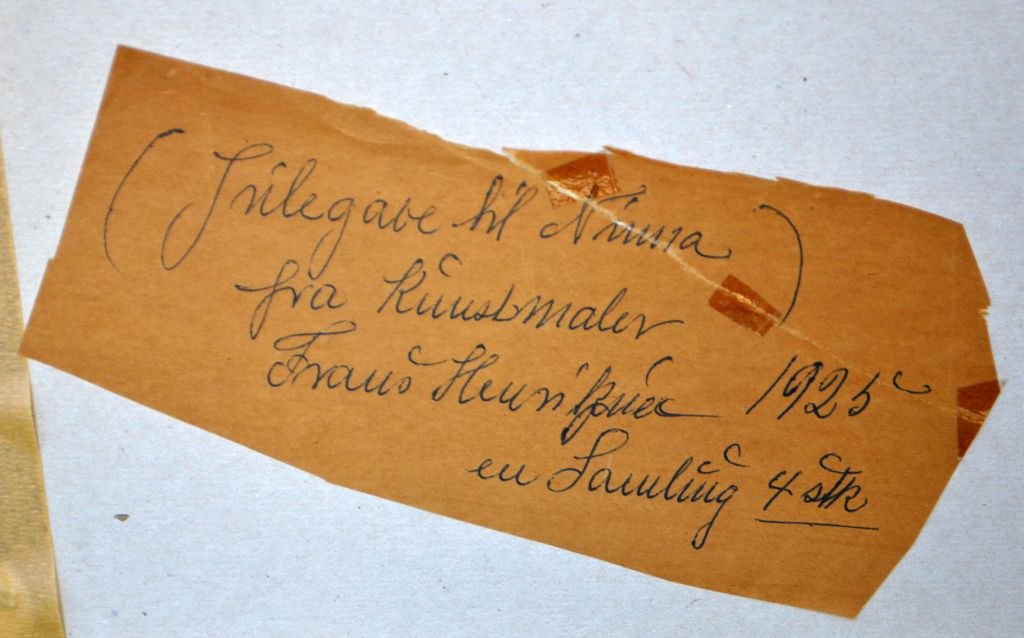 (Julegave til Ninna)
fra Kunstmaler
Frans Henriksen 1925
en Samling 4 stk